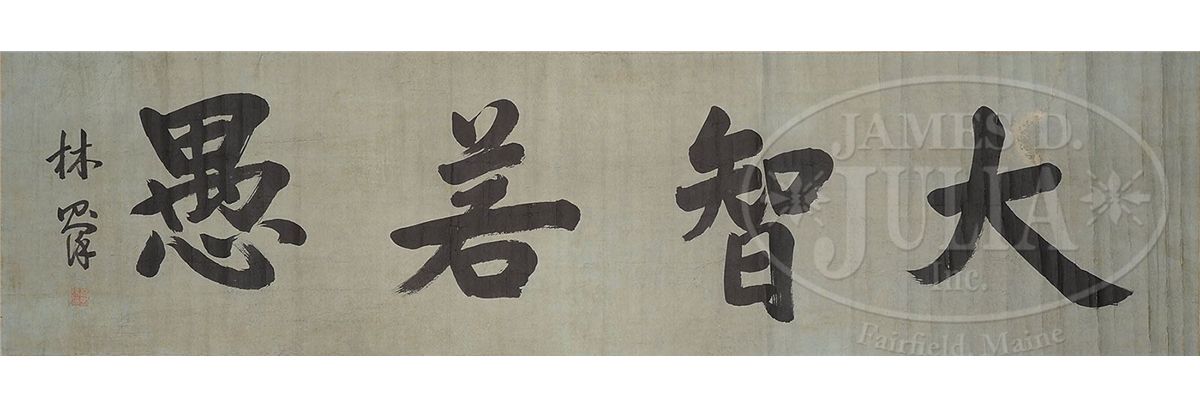 大智若愚
林
JAMES D.
JULIA
Inc.
Fairfield, Maine